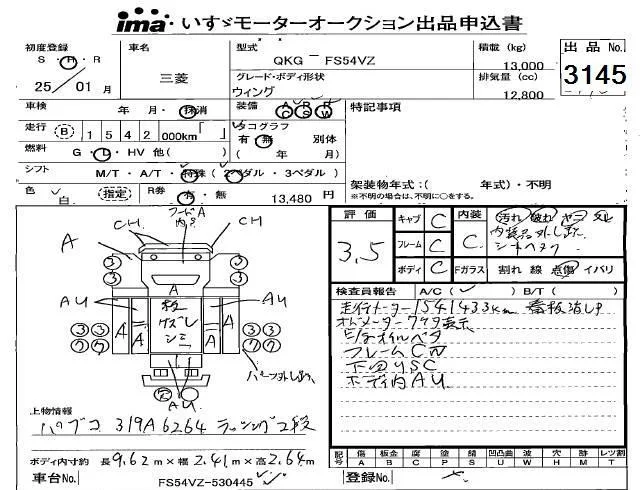 ima いすゞモーターオークション出品申込書
初度登録 S・H・R 25 / 01 月
車名 三菱
型式 QKG － FS54VZ
積載 (kg) 13,000
出品 No. 3145
グレード・ボディ形状 ウィング
排気量 (cc) 12,800
車検 年・月・抹消
装備 A/C R/S R/W
特記事項
走行 B 1 5 4 2 000km「 」
タコグラフ 有・無 別体 ( 年 月)
燃料 G・D・HV 他( )
シフト M/T・A/T・特殊 (2ペダル・3ペダル)
架装物年式:( 年式)・不明
※不明の場合は、不明に○をする。
色 白 指定
R券 有・無 13,480 円
評価 3.5
キャブ C
フレーム C
ボディ C
内装 C
汚れ 破れ ヤニ タル
内装品外し跡
Fガラス 割れ 線 点傷 イバリ
CH CH
A
AU AU
A
A A A A
板
ケズレ
シミ
③ ③ ③ ③
AU
検査員報告 A/C( ✓ ) B/T( )
走行メーター1541433km 看板消し戸
オドメーター 799表示
フレームCW
下回りSC
ボディ内AU
上物情報
パブコ 319A6264 ラッシング2段
ボディ内寸約 長9.62m×幅2.41m×高2.64m
記号 傷A 板金B 腐C 塗P 錆S 凹凸曲U 波W 穴H 跡M レンズ割T
車台No. FS54VZ-530445
登録No.